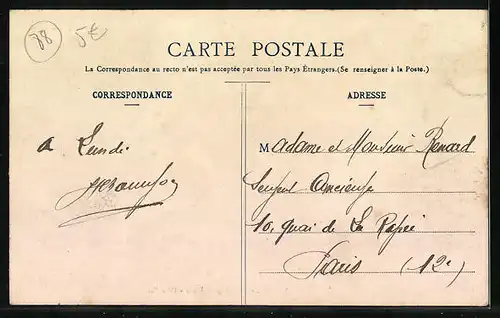 78
5€
CARTE POSTALE
La Correspondance au recto n'est pas acceptée par tous les Pays Étrangers.(Se renseigner à la Poste.)
CORRESPONDANCE
ADRESSE
a Lundi
Madame et Monsieur Renard
10, quai de La Rapée
Paris (12e)